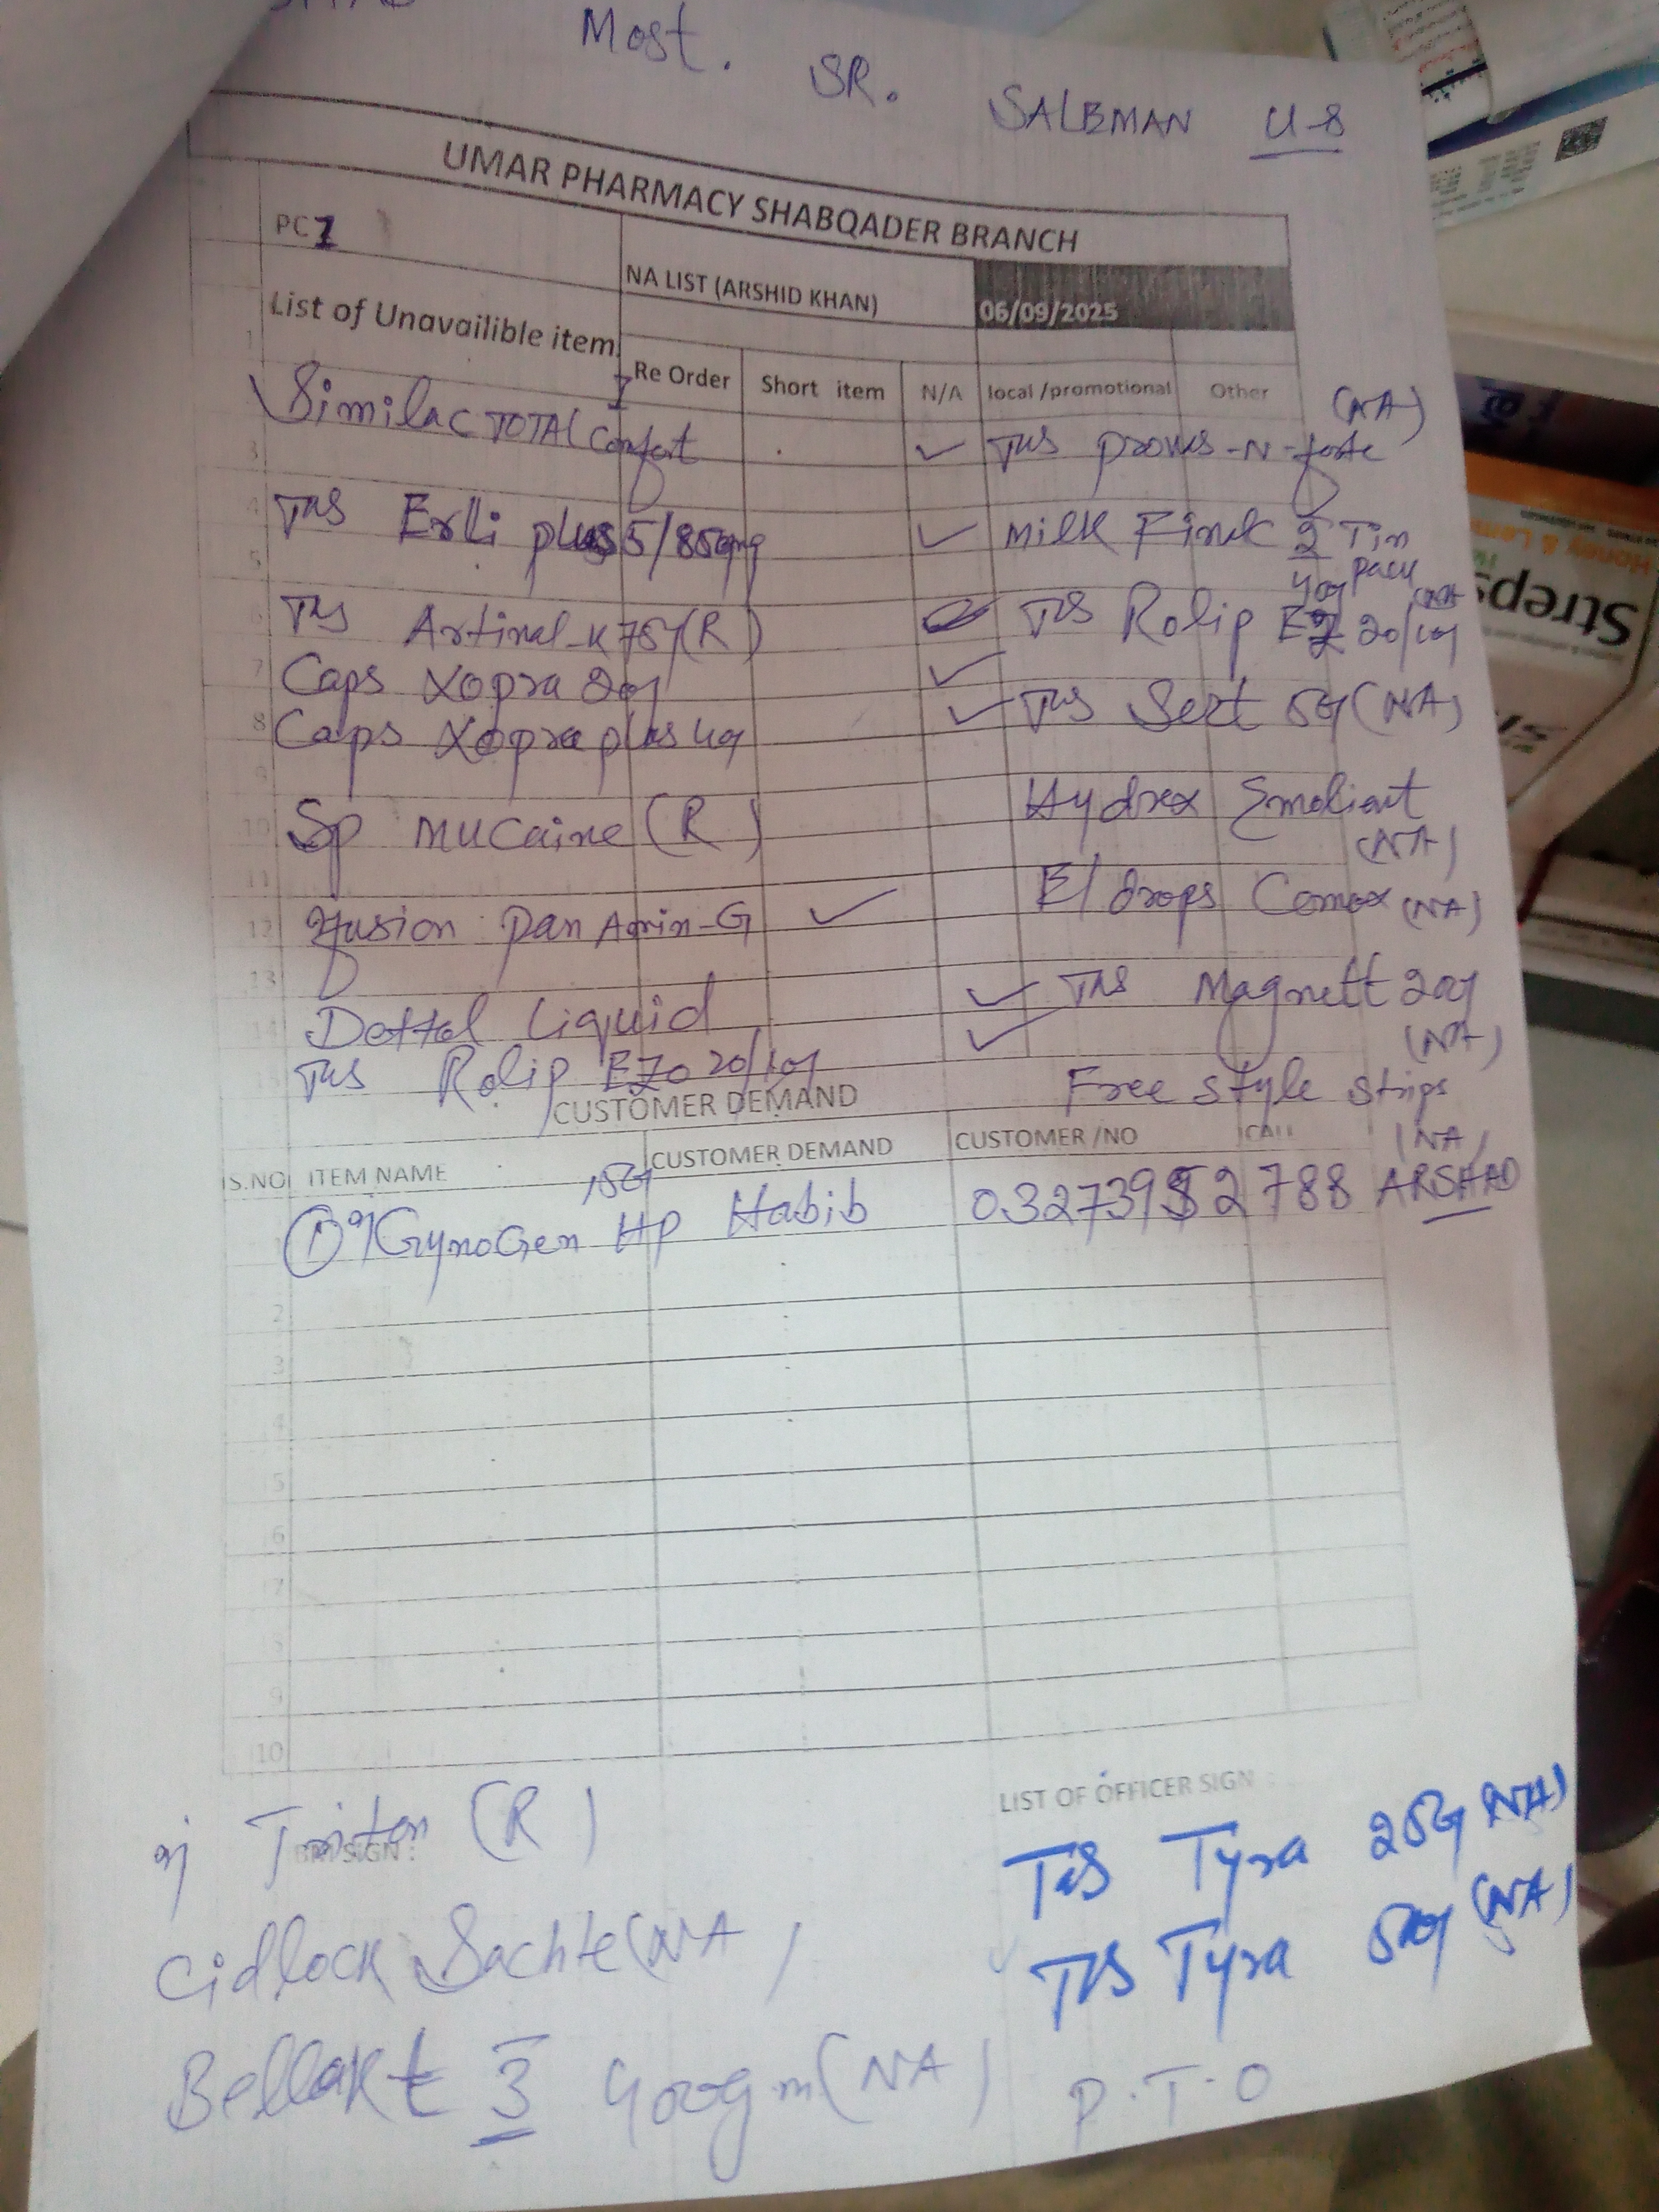 Most. SR. SALEMAN U-8
UMAR PHARMACY SHABQADER BRANCH
PC 1
NA LIST (ARSHID KHAN)
06/09/2025
List of Unavailible item
Re Order Short item N/A local /promotional Other
Similac TOTAL Comfort 1 ✓
(NA)
Tas Erli plus 5/850mg ✓ Milk Finck 2 Tin
400g pack (NA)
Artinal-K 75g (R) Rolip EZ 20/10g
Caps Xopra 20g ✓
Caps Xopra plus 40g ✓ Sert 50g (NA)
Sp Mucaine (R) Hydrex Emolient
(NA)
Infusion Pan Amin-G ✓ E/drops Comox (NA)
Dettol Liquid ✓ Magnett 20g
(NA)
Rolip EZO 20/10g ✓ Free style strips
(NA)
CUSTOMER DEMAND
S.NO ITEM NAME CUSTOMER DEMAND CUSTOMER /NO CALL
1 GynoGen HP Habib ARSHAD
2
3
4
5
6
7
8
9
10
LIST OF OFFICER SIGN :
SIGN :
(R)
Tyra 25g (NA)
Cidlock Sachte (NA)
Tyra 50g (NA)
Bellakt 3 400gm (NA)
P.T.O
Streps
Honey & Lemon